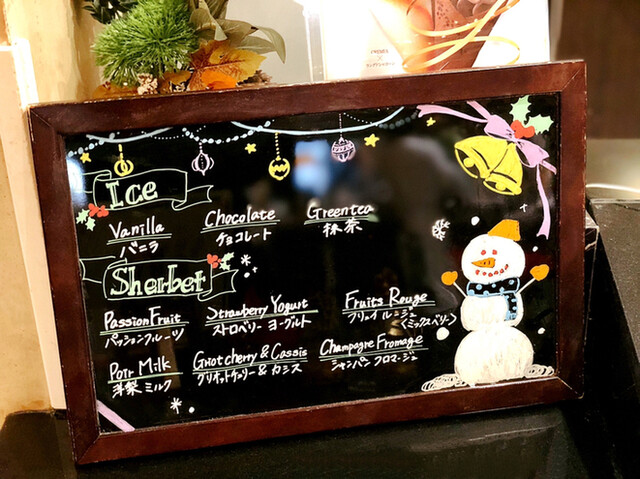 Ice
Vanilla
バニラ
Chocolate
チョコレート
Greentea
抹茶
Sherbet
Passion Fruit
パッションフルーツ
Strawberry Yogurt
ストロベリー ヨーグルト
Fruits Rouge
フリュイ ルージュ
〈ミックスベリー〉
Poir Milk
洋梨 ミルク
Griotcherry & Cassis
グリオットチェリー & カシス
Champagne Fromage
シャンパン フロマージュ